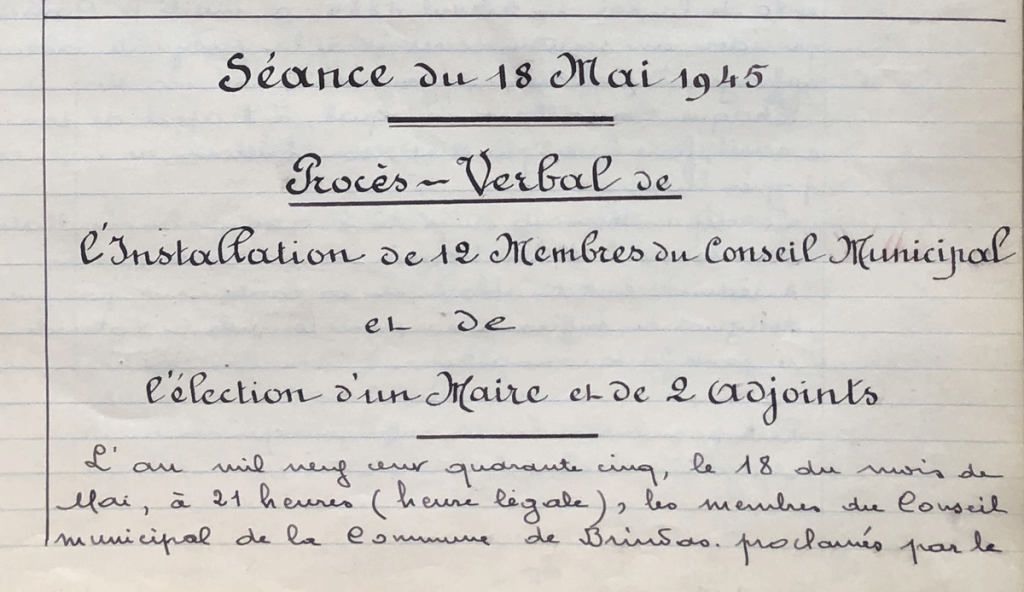 Séance du 18 Mai 1945
Procès-Verbal de
l'Installation de 12 Membres du Conseil Municipal
et de
l'élection d'un Maire et de 2 Adjoints
L'an mil neuf cent quarante cinq, le 18 du mois de
Mai, à 21 heures (heure légale), les membres du Conseil
municipal de la Commune de Brindas. proclamés par le